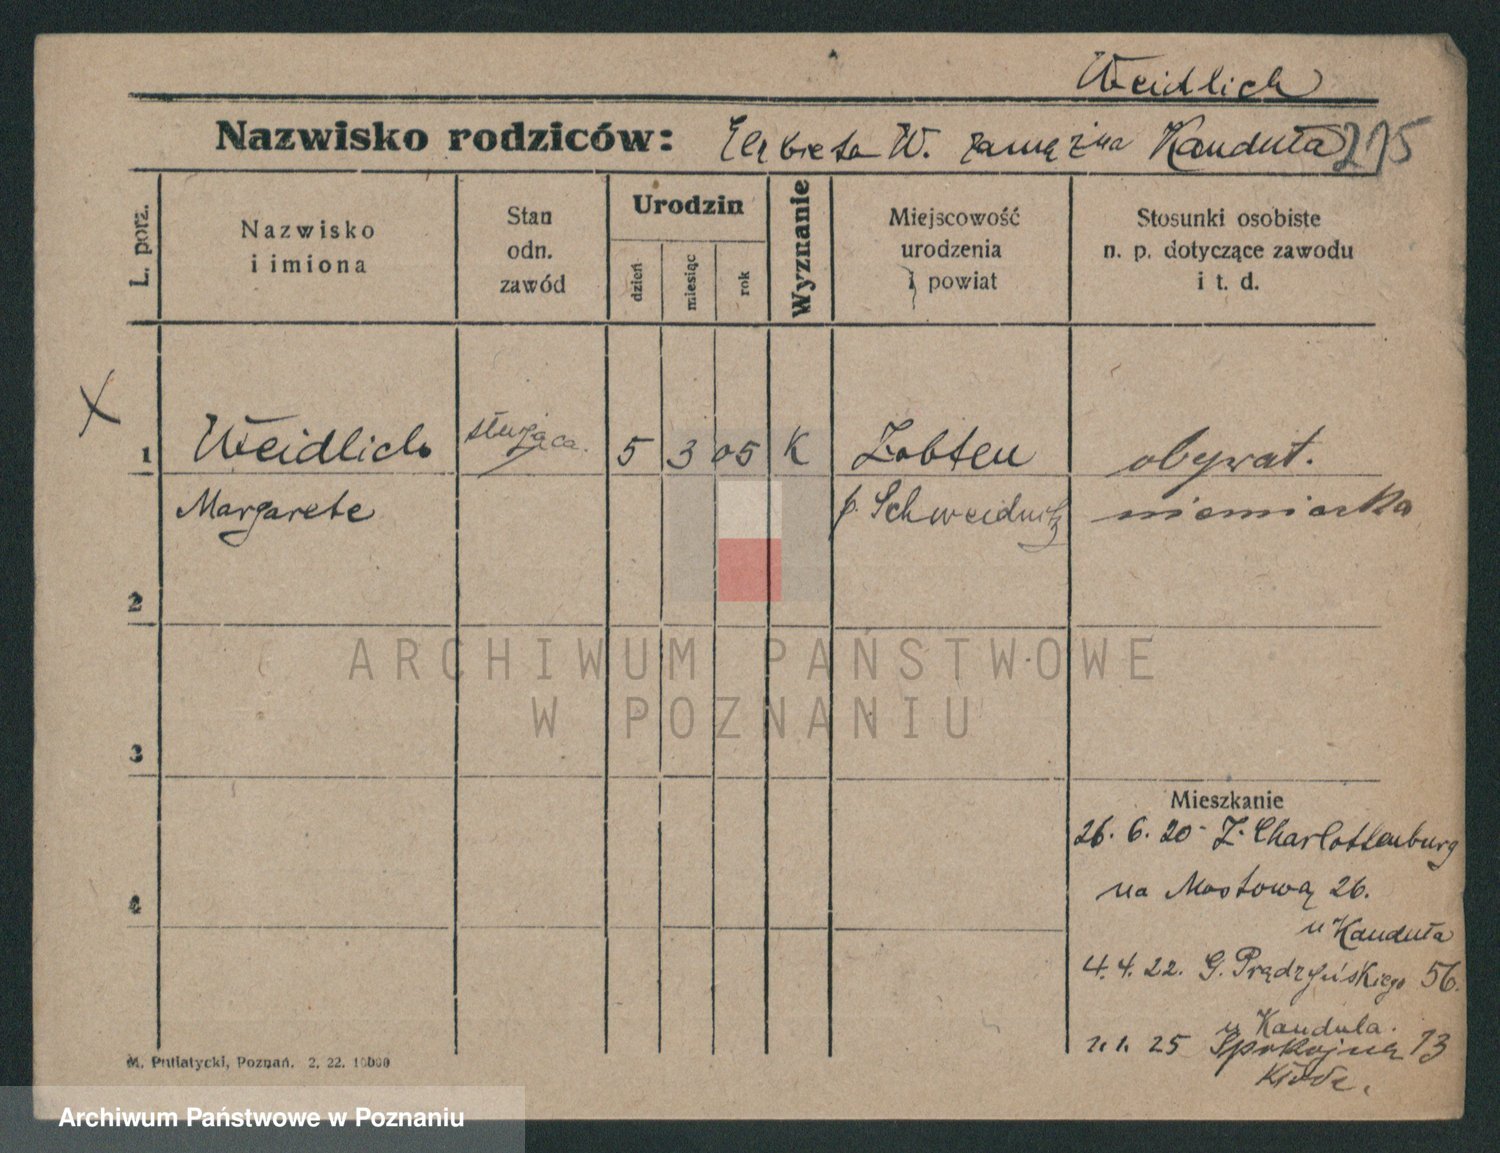 Weidlich
Nazwisko rodziców: Elżbieta W. zamężna Kanduła 215
L. porz.
Nazwisko
i imiona
Stan
odn.
zawód
Urodzin
dzień
miesiąc
rok
Wyznanie
Miejscowość
urodzenia
i powiat
Stosunki osobiste
n. p. dotyczące zawodu
i t. d.
X
1 Weidlich służąca. 5 3 05 K Zobten obywat.
Margarete p. Schweidnitz niemiecka
2
ARCHIWUM PAŃSTWOWE
W POZNANIU
3
Mieszkanie
26. 6. 20 - Z. Charlottenburg
na Mostową 26.
4
u Kanduła
4. 4. 22. G. Prądzyńskiego 56.
u Kandula.
25 Spokojną 13
M. Putiatycki, Poznań. 2. 22. 10000
Archiwum Państwowe w Poznaniu